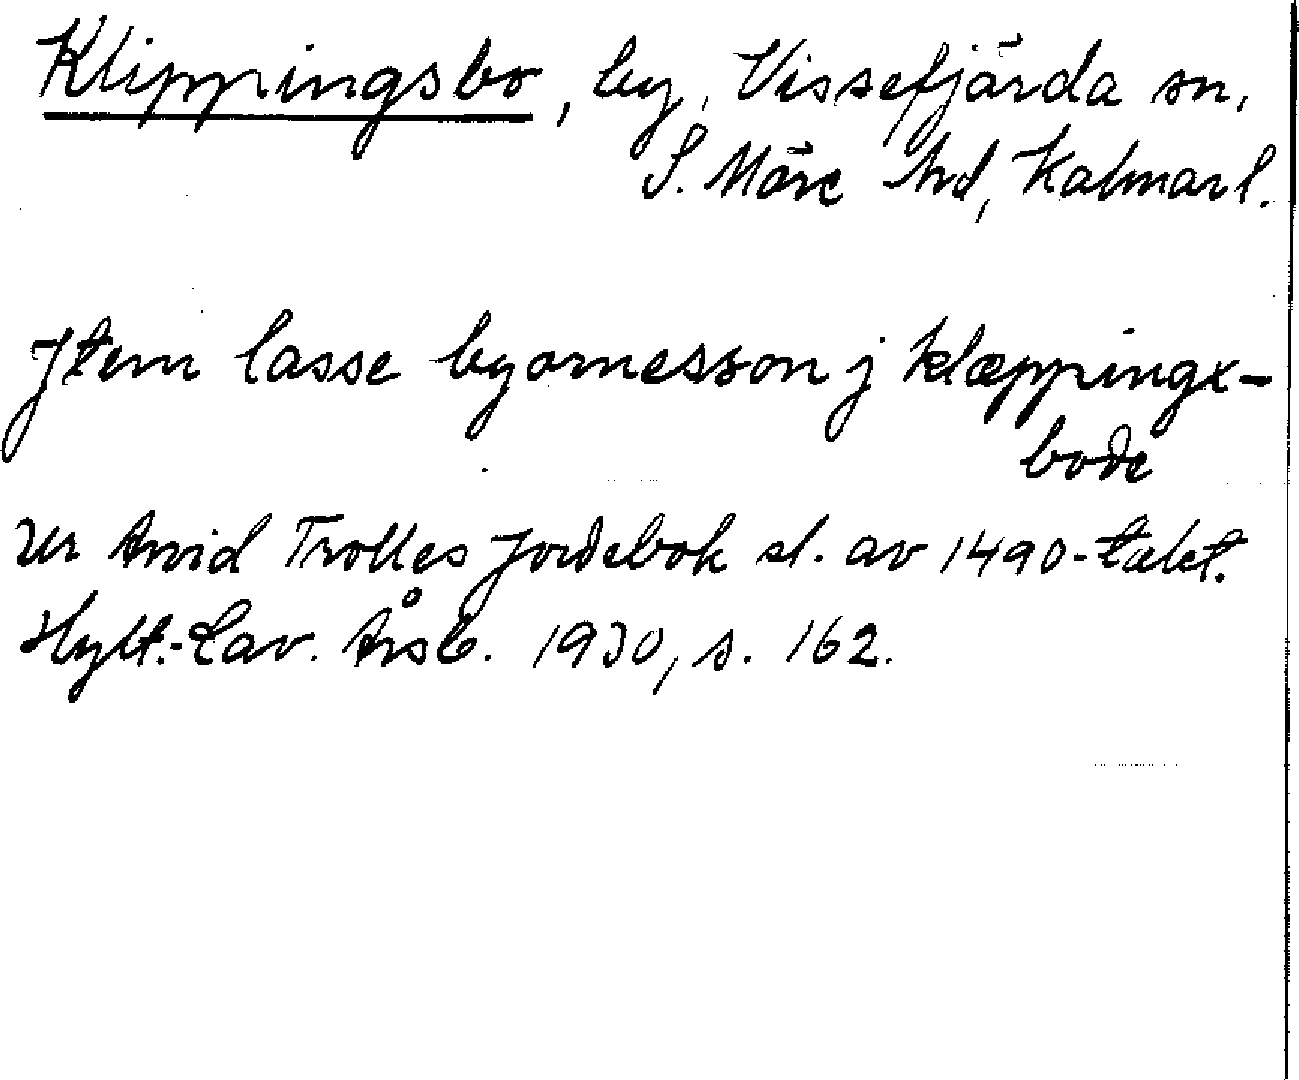 Klippingsbo, by, Vissefjärda sn,
S. Möre hd, Kalmar l.
Jtem lasse byornesson j klæppingx-
bode
Ur Arvid Trolles Jordebok sl. av 1490-talet.
Hylt.-Cav. Årsb. 1930, s. 162.